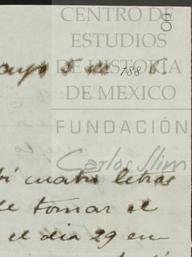 CENTRO DE
ESTUDIOS
DE HISTORIA
DE MEXICO
FUNDACIÓN
Carlos Slim
ayo 5 de 188
cuatro letras
tomar el
el dia 29 en